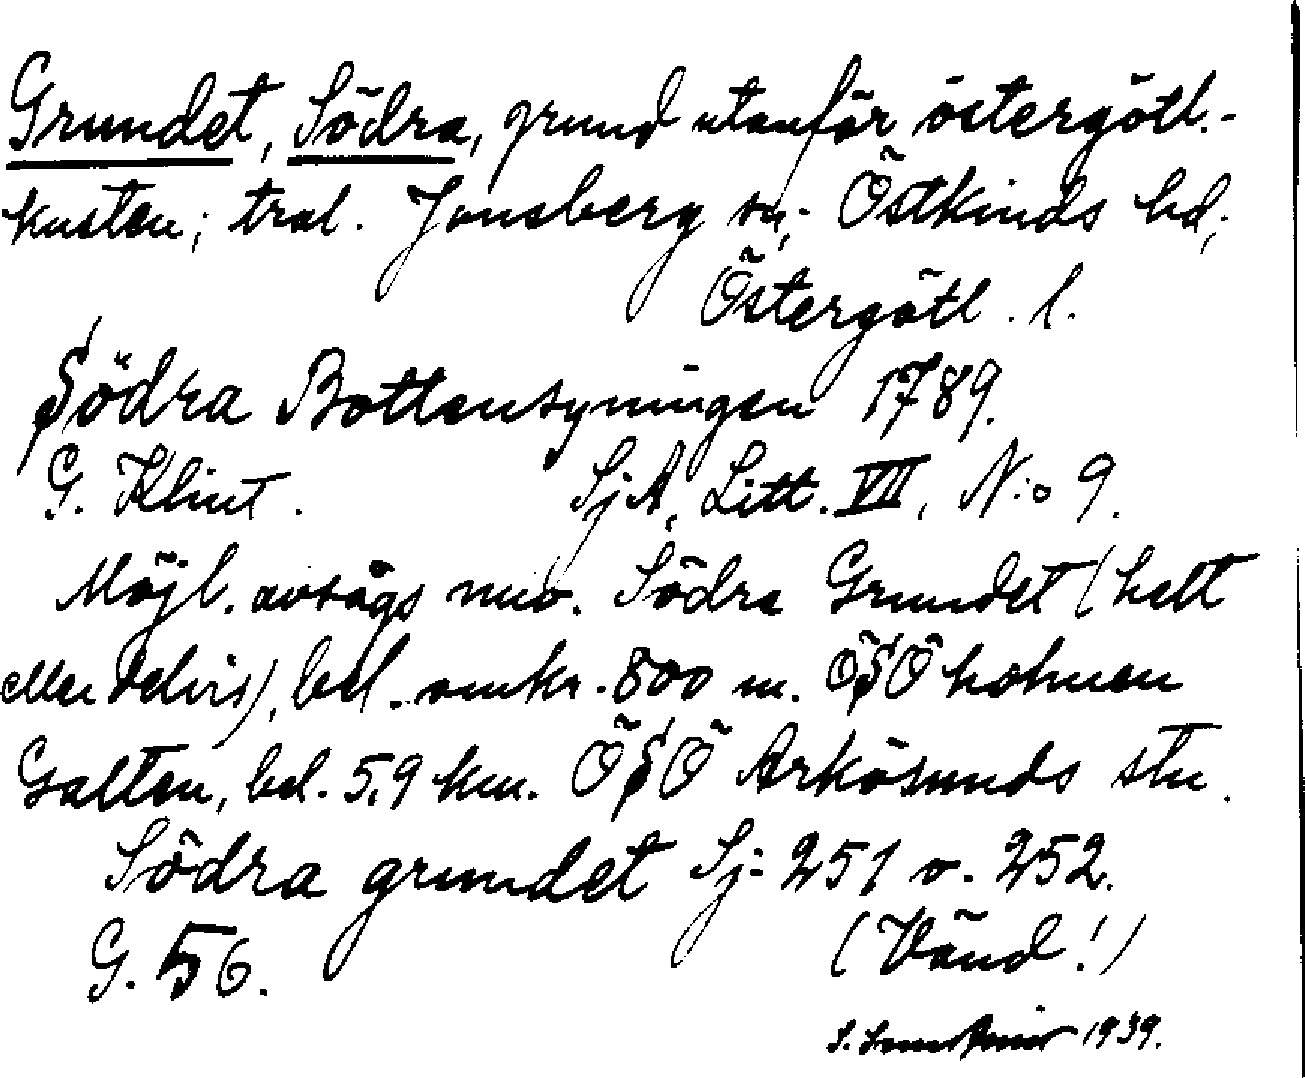 Grundet, Södra, grund utanför östergötl.-
kusten; tral. Jonsberg sn; Östkinds hd,
Östergötl. l.
Södra Bottensyningen 1789.
G. Klint. SjA, Litt. VII, N:o 9.
Möjl. avsågs nuv. Södra Grundet (helt
eller delvis), bel. omkr. 800 m. ÖSÖ holmen
Galten, bel. 5,9 km. ÖSÖ Arkösunds stn.
Södra grundet Sj: 251 o. 252.
G. 56. (Vänd!)
S. 1939.